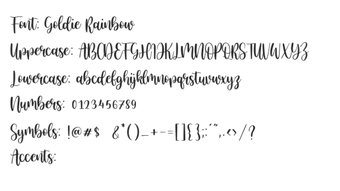 Font: Goldie Rainbow
Uppercase: ABCDEFGHIJKLMNOPQRSTUVWXYZ
Lowercase: abcdefghijklmnopqrstuvwxyz
Numbers: 0123456789
Symbols: !@#$ &*()_+-=[]{};:'",.<>/?
Accents: